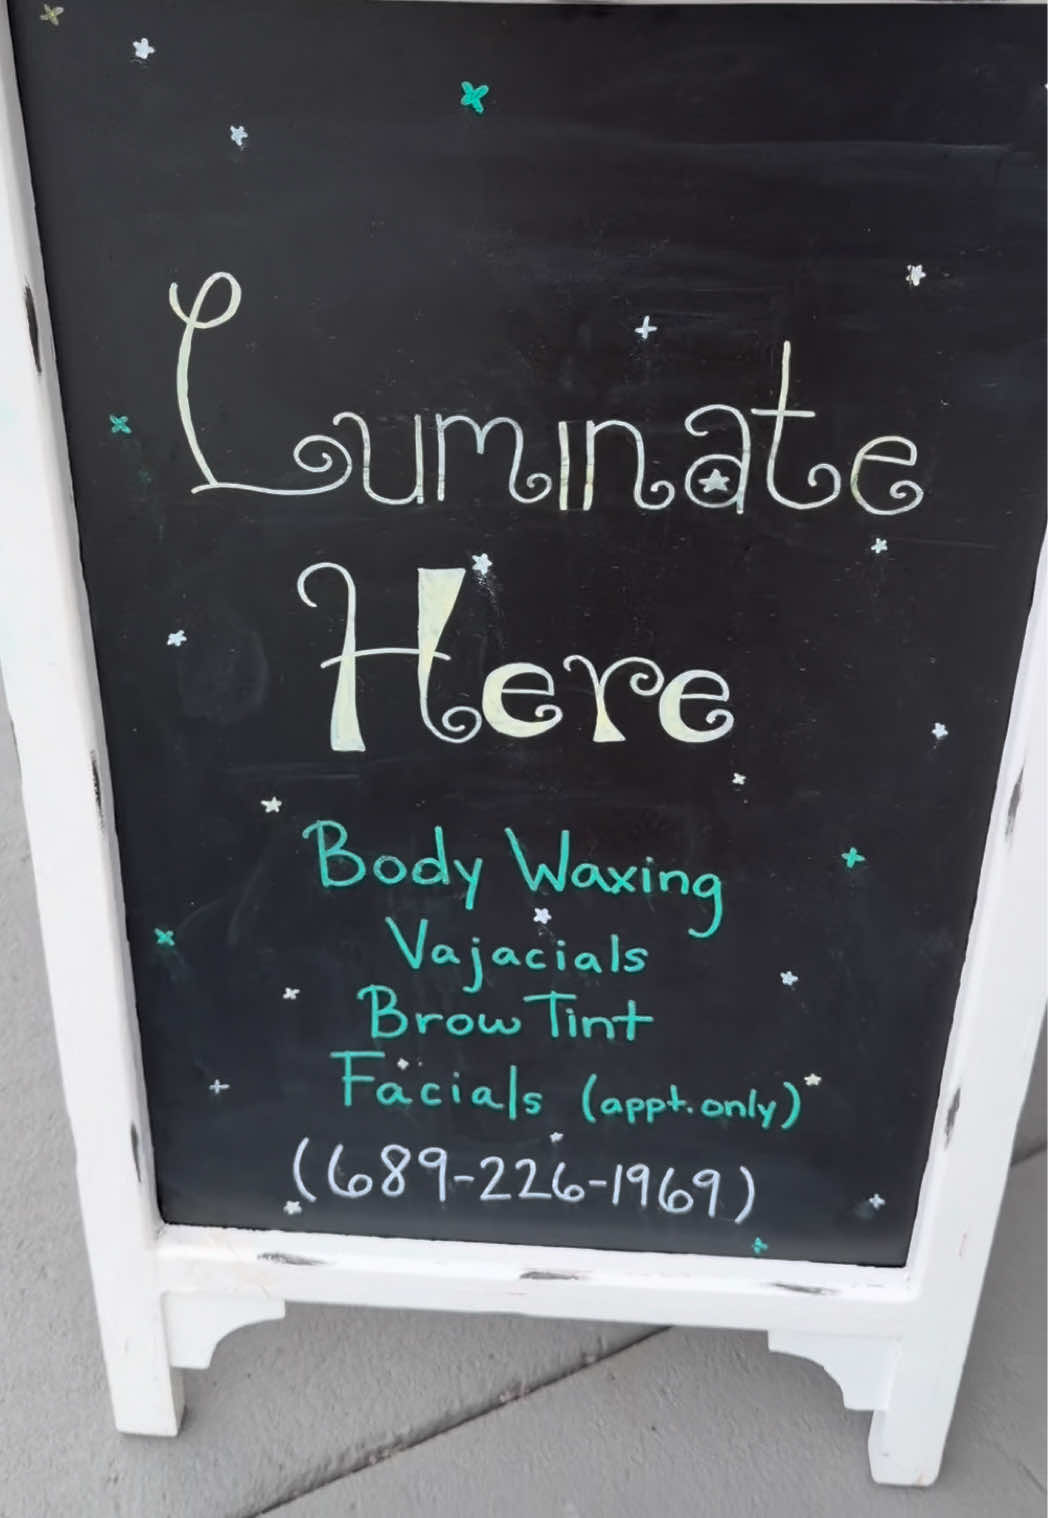 Luminate
Here
Body Waxing
Vajacials
Brow Tint
Facials (appt. only)
(689-226-1969)